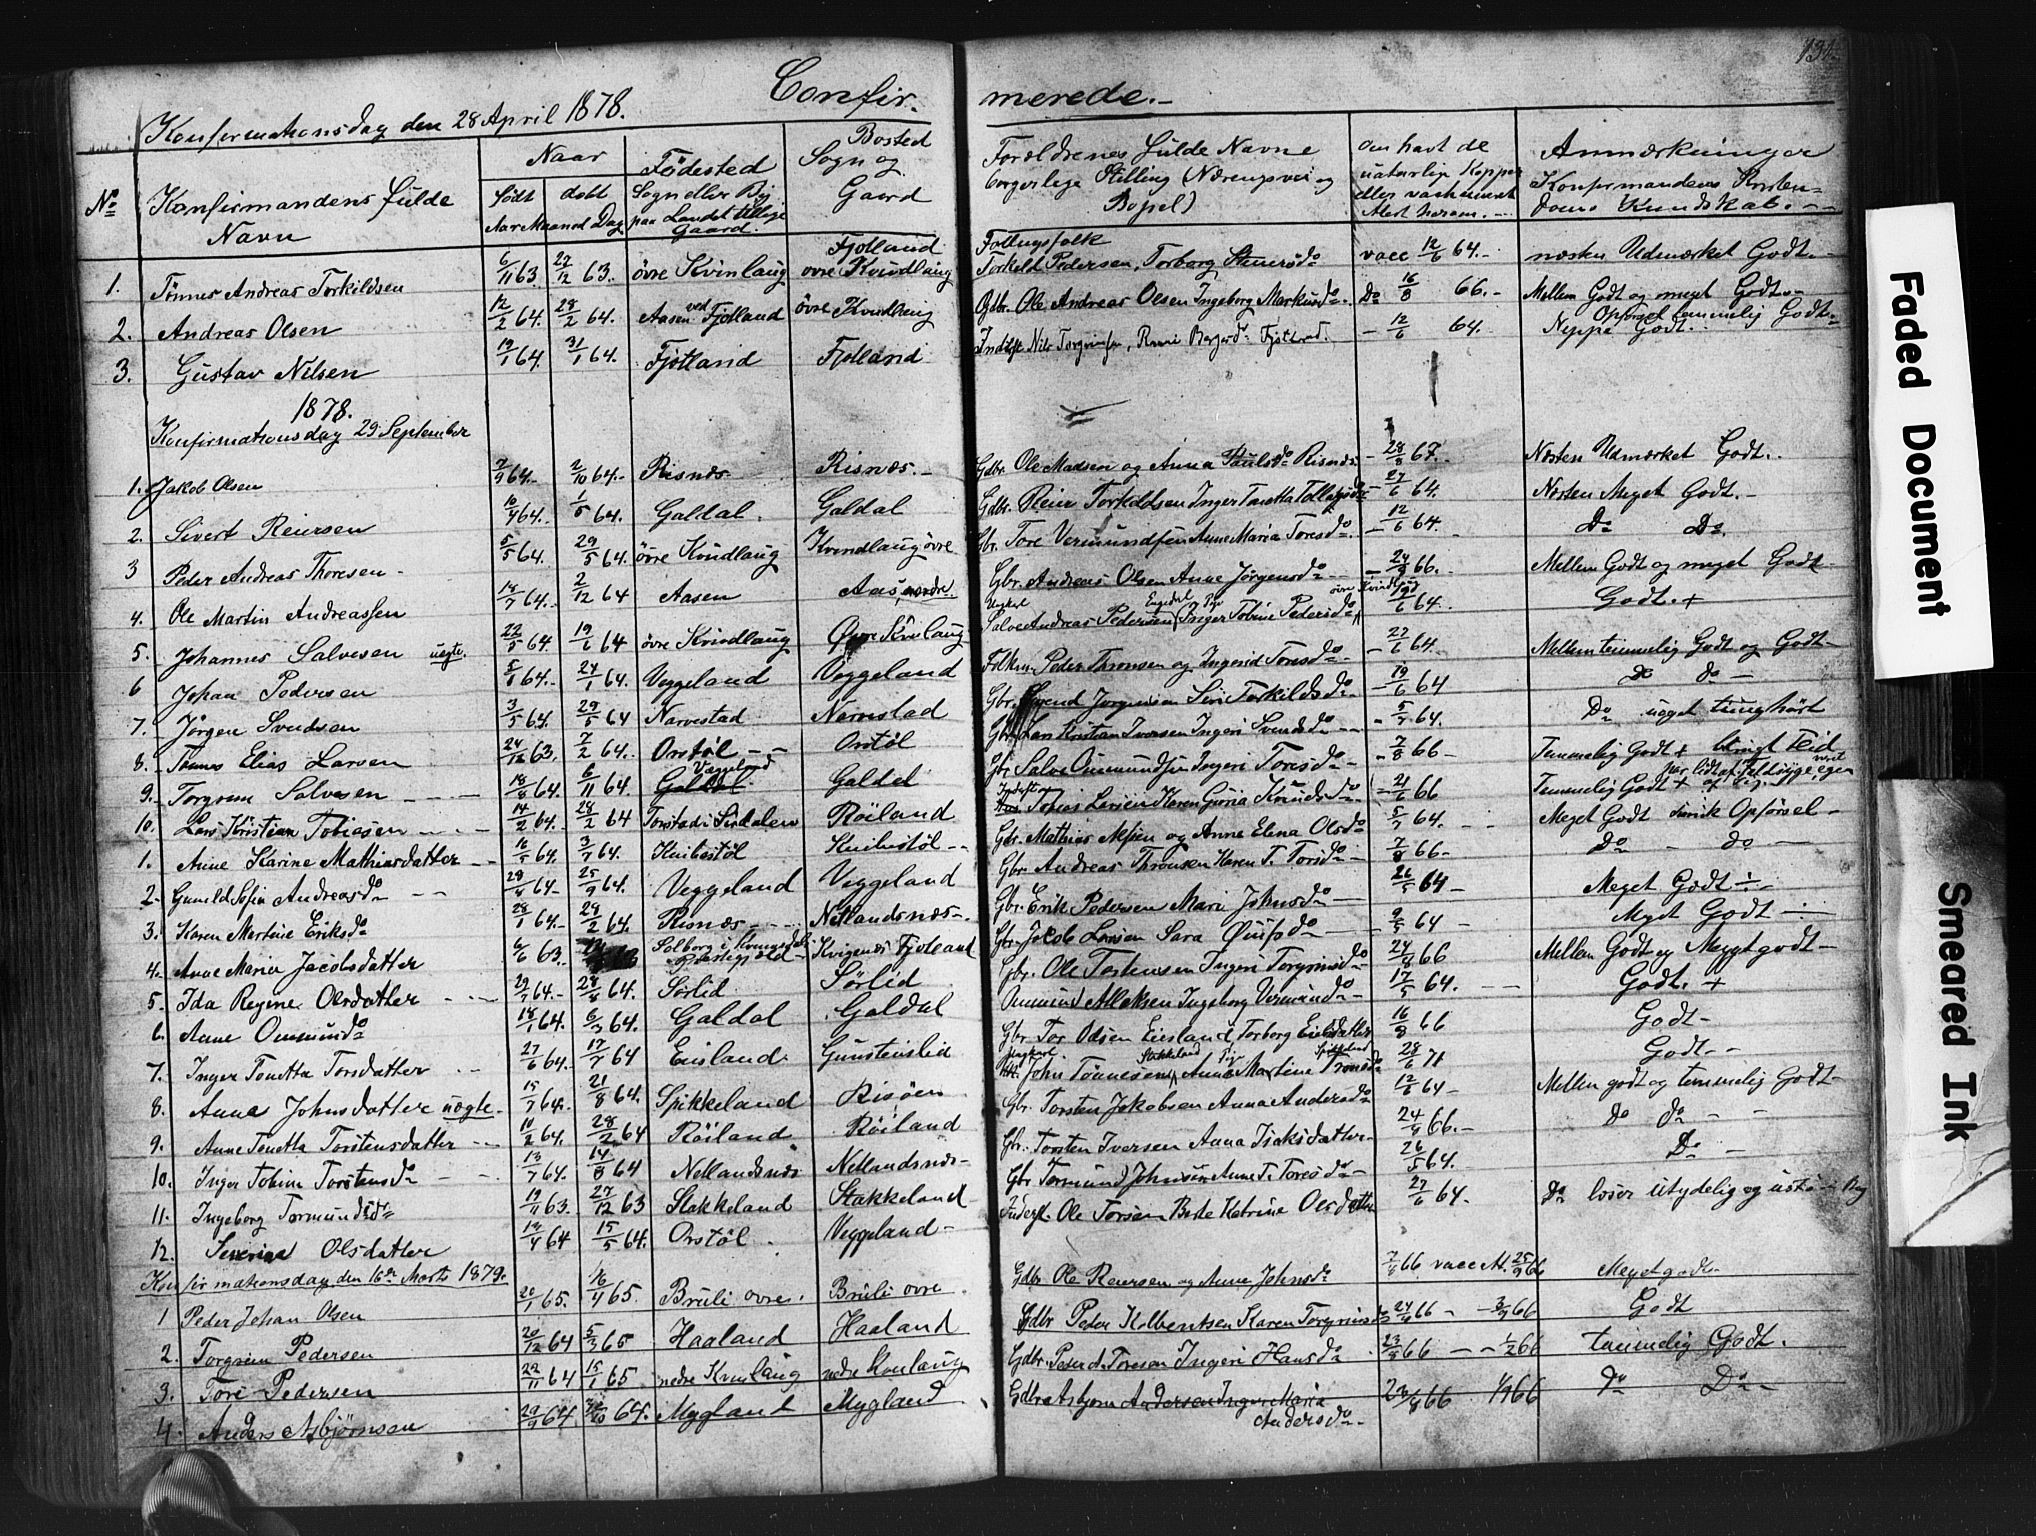 134.
Confir. merede.-
Konfirmationsdag den 28 April 1878.
No Konfirmandens fulde Navn
Naar
födt döbt
Aar Maaned Dag
Födested Sogn eller By paa Landet tillige Gaard.
Bosted Sogn og Gaard
Forældrenes fulde Navne borgerlige Stilling (Næringsvei og Bopel)
om havt de naturlige Kopper eller vaksineret
Anmærkninger Konfirmandens Kristendoms Kundskab.--
1. Tönnes Andreas Torkildsen 6/11 63 27/12 63. övre Kvinlaug Fjotland övre Kvindlaug Torkild Pedersen, Torborg vacc 12/6 64.- næsten Udmærket Godt.-
2. Andreas Olsen 12/2 64. 28/2 64. Aasen ved Fjotland övre Kvindlaug Gbr. Ole Andreas Olsen Ingeborg Markusdo- Do 16/8 66.- Mellem Godt og meget Godt.-
3. Gustav Nilsen 19/1 64. 31/1 64. Fjotland Fjotland - 12/6 64.- Neppe Godt. Opförsel temmelig Godt.-
1878.
Konfirmationsdag 29 September
1. Jakob Olsen 7/9 64.- 2/10 64.- Risnæs Risnæs- Gdbr. Ole Madsen og Anna Paulsdo Risnæs - 28/8 67.- Næsten Udmærket Godt.-
2. Sivert Reiersen 10/4 64.- 1/5 64. Galdal. Galdal Gdbr. Reier Torkildsen Inger Tonetta 27/6 64. Næsten Meget Godt.-
3 Peder Andreas Thoresen- 5/5 64. 29/5 64. övre Kvindlaug Kvindlaug övre Gbr. Tore Vermundsen Anne Maria Toresdo. - 12/6 64. Do Do.
4. Ole Martin Andreassen 18/7 64.- 2/12 64 Aasen Aas nordre. Gbr. Andreas Olsen Anne Jörgensdo - 24/9 66. Mellem Godt og meget Godt-
5. Johannes Salvesen uegte. 22/5 64. 19/6 64 övre Kvindlaug Övre Kvinlaug Salve Andreas Pedersen Inger Tobine Pedersdo 6 64. Godt.+
6 Johan Pedersen 5/1 64.- 24/1 64. Veggeland Veggeland Peder Thronsen og Ingerid Toresdo.- - 27/6 64. Mellem temmelig Godt og Godt-
7. Jörgen Svendsen 3/5 64. 29/5 64 Narvestad Narvestad Gbr. Svend Jörgensen Siri Torkildsdo.- - 19/6 64 Do do-
8.- Tönnes Elias Larsen 24/12 63. 7/2 64. Orstöl -- Orstöl Gbr. Lars Kristian Iversen Ingeri Svendsdo -- - 5/7 64. Do noget tunghört
9.- Torgrim Salvesen --- 18/8 64. 6/11 64. Galdal Veggeland Galdal Gbr. Salve Ommundsen Ingeri Toresdo - - 7/8 66- Temmelig Godt +
10. Lars Kristian Tobiasen --- 14/2 64. 28/2 64 Torstad i Sirdalen Röiland Tobias Larsen Karen Knudsdo- - 21/6 66 Temmelig Godt +
1. Anne Karine Mathiasdatter -- 16/5 64. 3/7 64. Knibestöl Knibestöl -- Gbr. Mathias og Anne Elena Olsdo 5/7 64.- Meget Godt Opförsel -
2. Gunild Sofia Andreasdo -- 28/8 64- 25/9 64. Veggeland Veggeland Gbr. Andreas Thronsen Karen T. Torsdo- 7/8 66- Do - do -
3. Karen Martine Eriksdo 28/1 64.- 29/2 64. Risnæs Netlandsnæs-. Gbr. Erik Pedersen Mari Johnsdo - 26/5 64- Meget Godt ÷
4. Anne Maria Jacobsdatter 6/6 63. Kvigenæs Fjotland Gbr. Jacob Larsen Sara do - 9/5 64 - Meget Godt -
5. Ida Regine Olsdatter --- 29/7 64.- 28/8 64. Sörlid Sörlid Gbr. Ole Torkensen Ingeri Torgrimsdo- 24/8 66 Mellem Godt og Meget godt-
6. Anne Ommundsdo 18/1 64. 6/3 64. Galdal Galdal Ommund Ingeborg Vermundsdo- 17/5 64. -- Godt. +
7. Inger Tonetta Torsdatter -- 27/6 64. 17/7 64 Eiesland. Gunsteinslid Gbr. Tor Odsen Eiesland Torborg 16/8 66 Godt-
8. Anna Johnsdatter uegte. 15/7 64. 21/8 64. Spikkeland Risöen John Tönnesen Stakkeland Anna Martine Tronsdo Spikkeland 28/6 71 Godt--
9. Anne Tonetta Torstensdatter -- 10/2 64. 28/2 64 Röiland Röiland Gbr. Torsten Jakobsen Anna Andersdo 12/6 64- Mellem godt og temmelig Godt-
10. Inger Tobine Torstensdo - 13/7 64. 14/8 64 Netlandsnæs Netlandsnæs- Gbr. Torsten Iversen Anna Isaksdatter- 24/9 66.- Do Do - -
11. Ingeborg Tormundsdo 19/11 63. 27/12 63 Stakkeland Stakkeland Gbr Tormund Johnsen Anne T. Toresdo- 26/5 64. Do -
12. Severine Olsdatter 14/4 64 15/5 64. Orstöl. Veggeland- Inderst. Ole Torsen Berte Katrine Olsdatter 27/6 64. Do læser utydelig og
Konfirmationsdag den 16de Marts 1879.
1 Peder Johan Olsen 20/1 65. 16/4 65. Bruli övre. Bruli övre. Gdbr Ole Reiersen og Anne Johnsdo 7/8 66 vacc At. 25/9 66 Meget godt
2. Torgrim Pedersen 20/12 64 5/3 65 Haaland Haaland Gdbr Peder Kolbentsen Karen Torgrimsdo 24/8 66 - - 3/9 66 Godt
3. Tore Pedersen 29/11 64 15/1 65 nedre Kvinlaug nedre Kvinlaug Gdbr. Peder A. Toresen Ingeri Hansdo 23/8 66 - - 1/2 66 temmelig Godt.
4. Anders Asbjörnsen 29/9 64 64. Mygland Mygland Gdbr Asbjörn Andersen Inger Maria Andersdo- 23/8 66 1/9 66 Do Do-
Faded Document
Smeared Ink